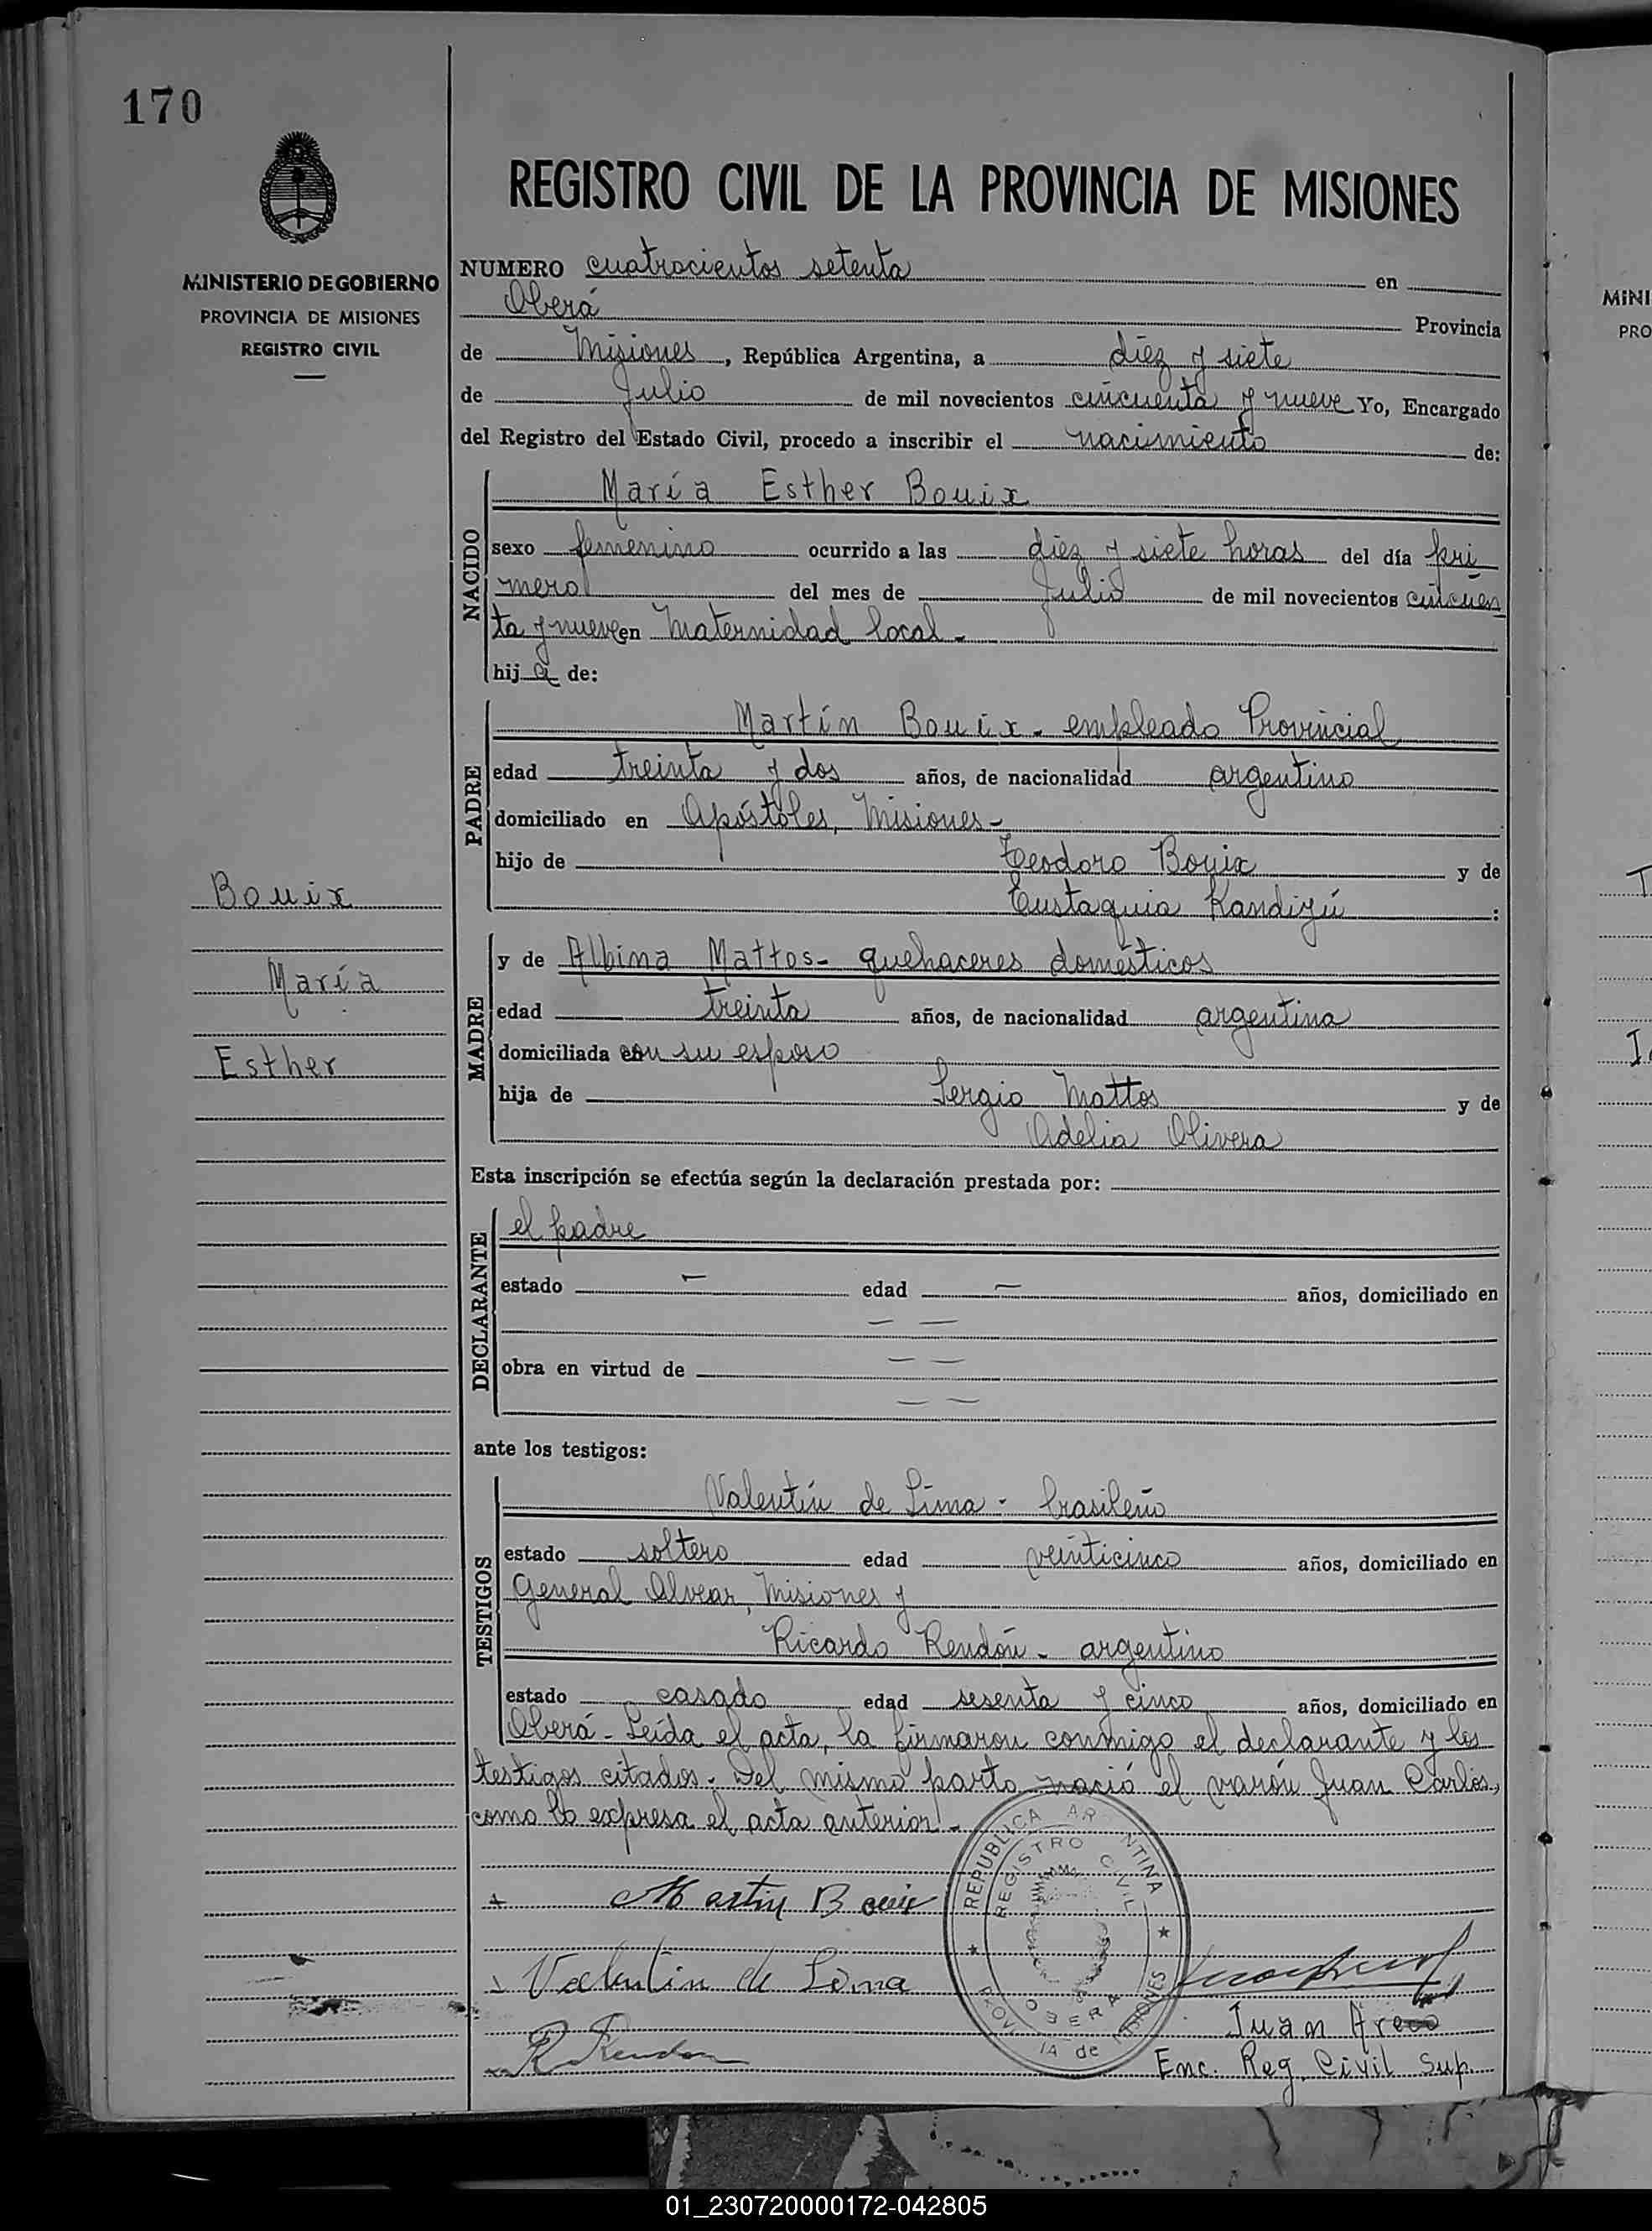 170
REGISTRO CIVIL DE LA PROVINCIA DE MISIONES
MINISTERIO DE GOBIERNO
PROVINCIA DE MISIONES
REGISTRO CIVIL
NUMERO cuatrocientos setenta en
Oberá Provincia
de Misiones, República Argentina, a diez y siete
de Julio de mil novecientos cincuenta y nueve Yo, Encargado
del Registro del Estado Civil, procedo a inscribir el nacimiento de:
NACIDO
María Esther Bouix
sexo femenino ocurrido a las diez y siete horas del día pri
mero del mes de Julio de mil novecientos cincuen
ta y nueve en Maternidad local.
hija de:
PADRE
Martín Bouix - empleado Provincial
edad treinta y dos años, de nacionalidad argentino
domiciliado en Apóstoles, Misiones -
hijo de Teodoro Bouix y de
Eustaquia Kandizú :
MADRE
y de Albina Mattos - quehaceres domésticos
edad treinta años, de nacionalidad argentina
domiciliada con su esposo
hija de Sergio Mattos y de
Adelia Olivera
Bouix
María
Esther
Esta inscripción se efectúa según la declaración prestada por:
DECLARANTE
el padre
estado — edad — años, domiciliado en
— —
obra en virtud de — —
— —
ante los testigos:
TESTIGOS
Valentín de Lima - brasileño
estado soltero edad veinticinco años, domiciliado en
General Alvear, Misiones y
Ricardo Rendón - argentino
estado casado edad sesenta y cinco años, domiciliado en
Oberá - Leída el acta, la firmaron conmigo el declarante y los
testigos citados. Del mismo parto nació el varón Juan Carlos,
como lo expresa el acta anterior.-
Martin Bouix
Valentin de Lima
R Rendon
REPUBLICA ARGENTINA
REGISTRO CIVIL
OBERA
PROVINCIA de MISIONES
Juan
Enc. Reg. Civil Sup.
MINI
PRO
01_230720000172-042805